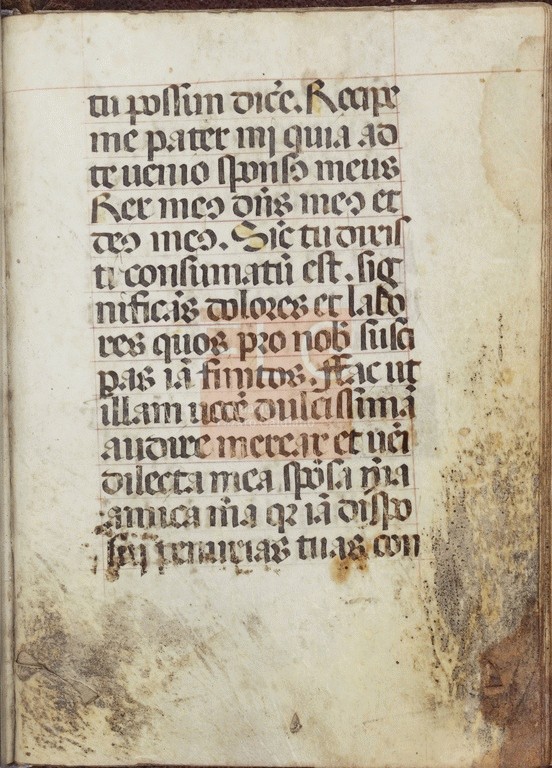 tu possim dic̄e. Recipe
me pater mi quia ad
te uenio sponsꝯ meus
Rex meꝯ dn̄s meꝯ et
deꝯ meꝯ. Sic̄ tu dixis
ti consumatū est. sig
nificās dolores et labo
res quos pro nob̄ susci
pas iā finitos. Fac ut
illam uocē dulcissimā
audire merear et ueī
dilecta mea spōsa m̄a
amica m̄a qr iā dispo
penurias tuas con